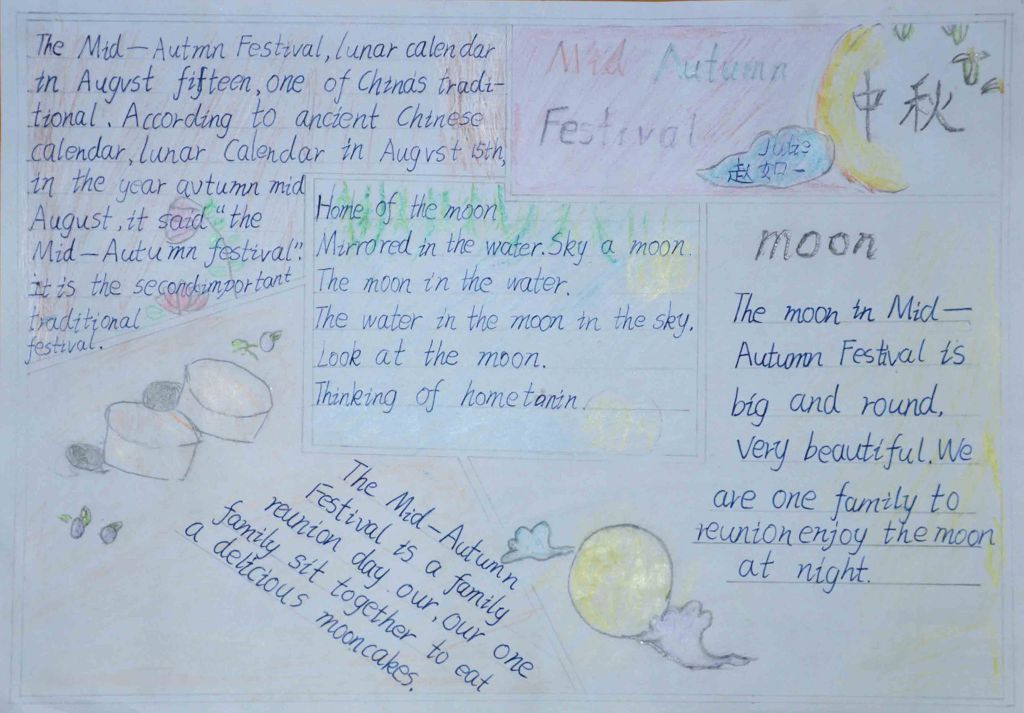 The Mid-Autmn Festival, lunar calendar
in August fifteen, one of Chinas tradi-
tional. According to ancient Chinese
calendar, lunar Calendar in August 15th,
in the year autumn mid
August, it said "the
Mid-Autumn festival".
it is the second important
traditional
festival.
Mid Autumn
Festival
中秋
Julie
赵如一
Home of the moon
Mirrored in the water. Sky a moon.
The moon in the water.
The water in the moon in the sky.
Look at the moon.
Thinking of home tanin.
moon
The moon in Mid-
Autumn Festival is
big and round,
very beautiful. We
are one family to
reunion enjoy the moon
at night.
The Mid-Autumn
Festival is a family
reunion day our, our one
family sit together to eat
a delicious mooncakes.